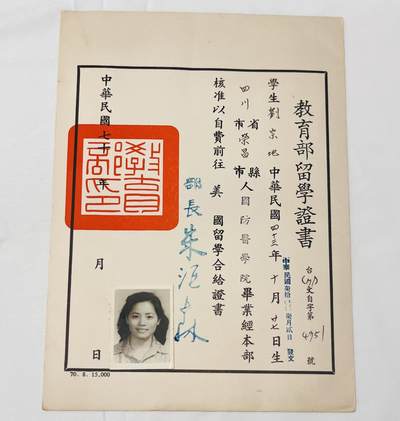 教育部留學證書
台(71)文自字第4951號
中華民國柒拾 年柒月貳日 發文
學生劉宗地 中華民國四十三年十月廿七日生
四川省榮昌縣人國防醫學院畢業經本部
市 市
核准以自費前往美國留學合給證書
部長朱滙森
中華民國七十 年 月 日
教育部印
70. 8. 15,000